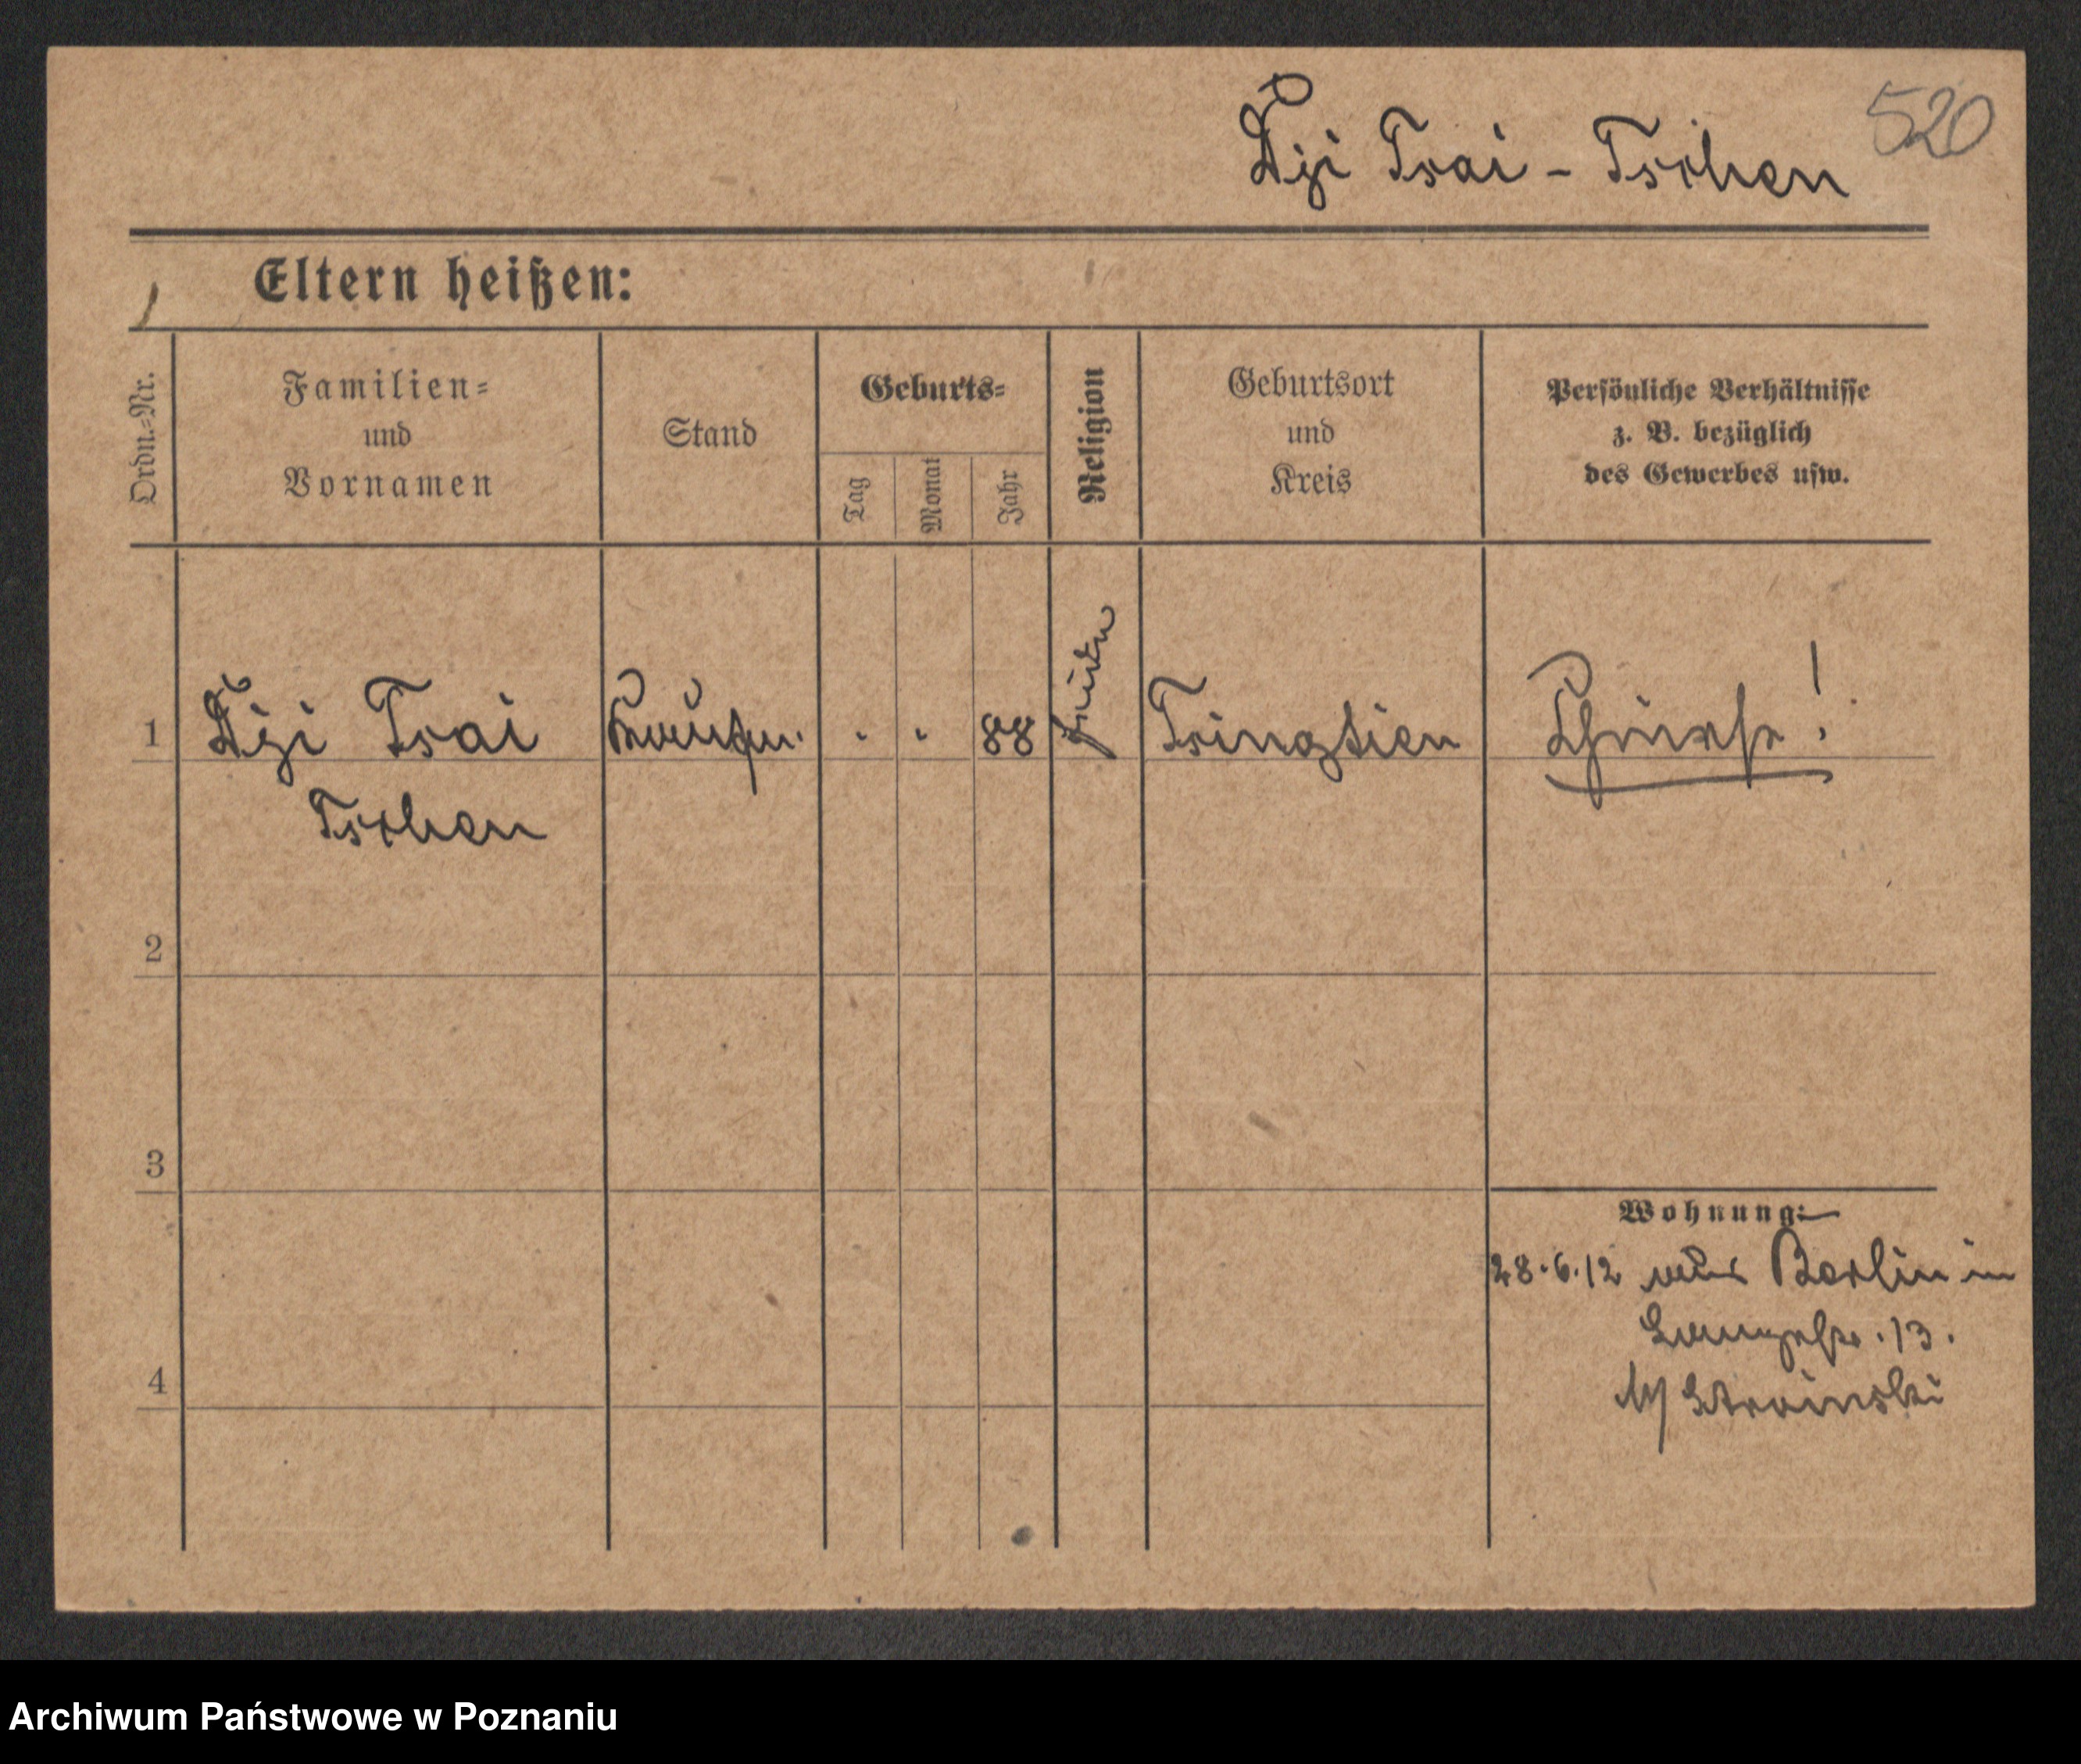 520
Tsai - Tschen
Eltern heißen:
Ordn.-Nr.
Familien=
und
Vornamen
Stand
Geburts=
Tag
Monat
Jahr
Religion
Geburtsort
und
Kreis
Persönliche Verhältnisse
z. B. bezüglich
des Gewerbes usw.
1
Tsai
Tschen
Kaufm.
88
Heide
Tsingtien
Chinese!
2
3
4
Wohnung:
28.6.12 aus Berlin in
Langestr. 13.
b/ Stroinski
Archiwum Państwowe w Poznaniu